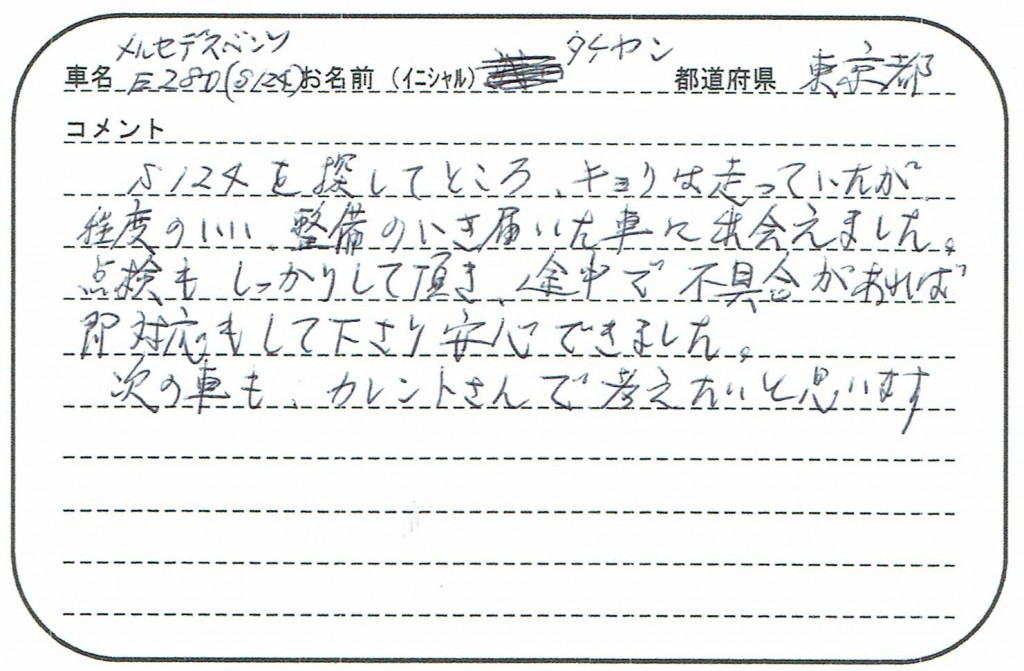 メルセデスベンツ
車名 E280(S124) お名前 (イニシャル) タケヤン 都道府県 東京都
コメント
S124を探してところ、キョリは走っていたが
程度のいい、整備のいき届いた車に出会えました。
点検もしっかりして頂き、途中で不具合があれば
即対応もして下さり安心できました。
次の車も、カレントさんで考えたいと思います